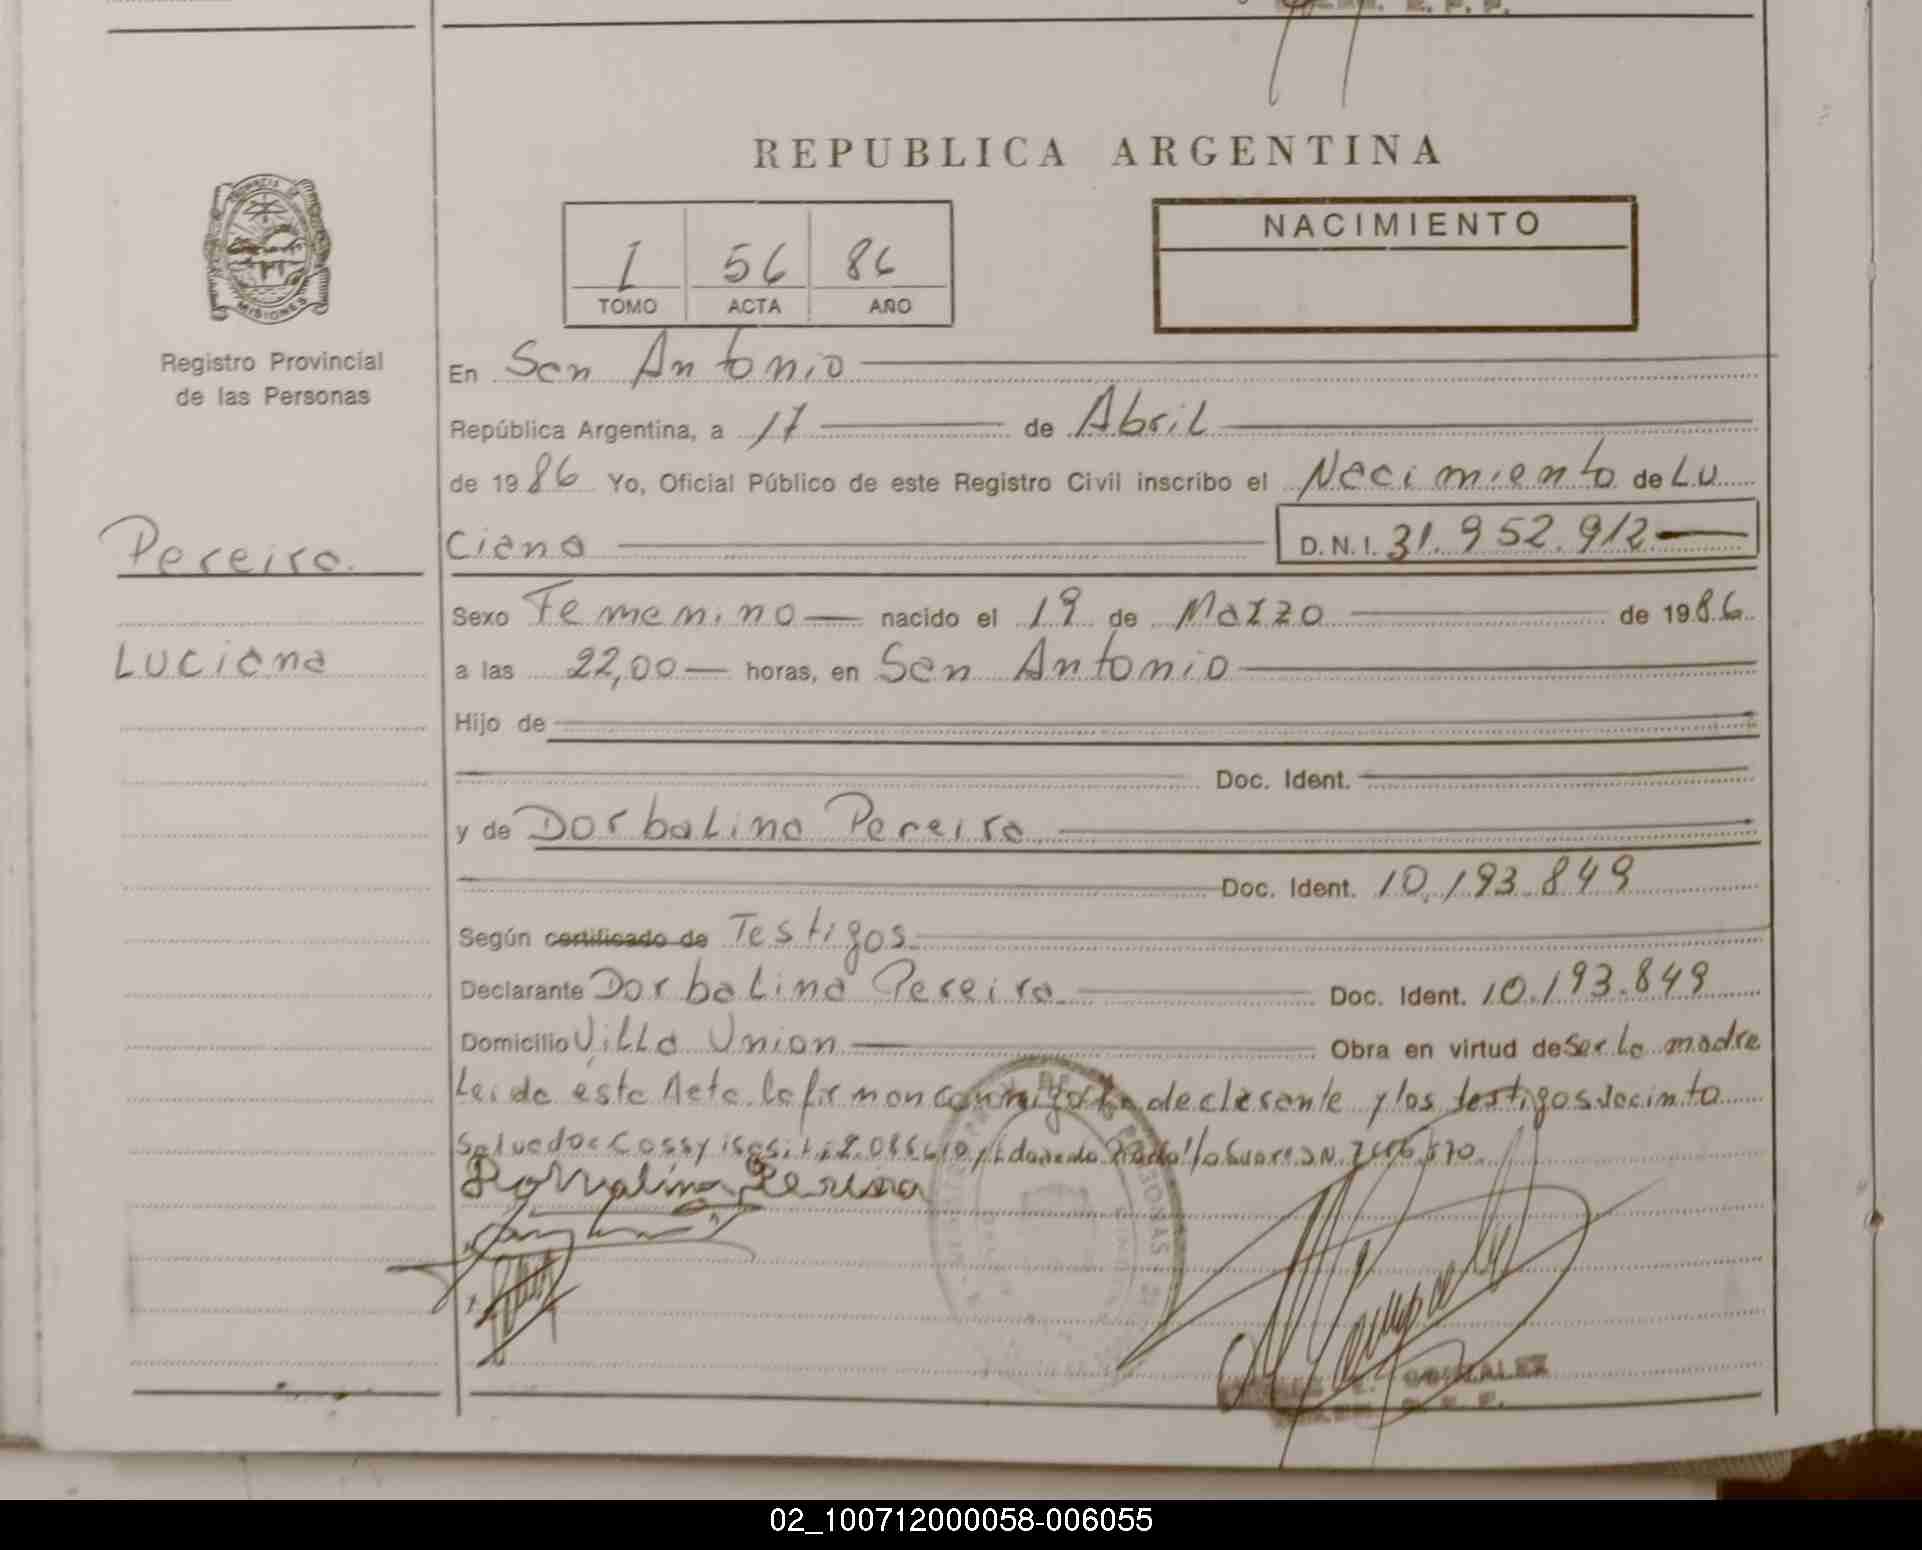 REPUBLICA ARGENTINA
PROVINCIA DE
MISIONES
Registro Provincial
de las Personas
I 56 86
TOMO ACTA AÑO
NACIMIENTO
En San Antonio
República Argentina, a 17 de Abril
de 1986 Yo, Oficial Público de este Registro Civil inscribo el Nacimiento de Lu
Pereira.
Ciana D.N.I. 31.952.912
Sexo Femenino nacido el 19 de Marzo de 1986
Luciana
a las 22,00 horas, en San Antonio
Hijo de
Doc. Ident.
y de Dorbalina Pereira
Doc. Ident. 10.193.849
Según certificado de Testigos
Declarante Dorbalina Pereira Doc. Ident. 10.193.849
Domicilio Villa Union Obra en virtud de Ser la madre
Leida esta Acta la firman conmigo la declarante y los testigos Jacinto
Salvador
Pereira
GONZALEZ
02_100712000058-006055